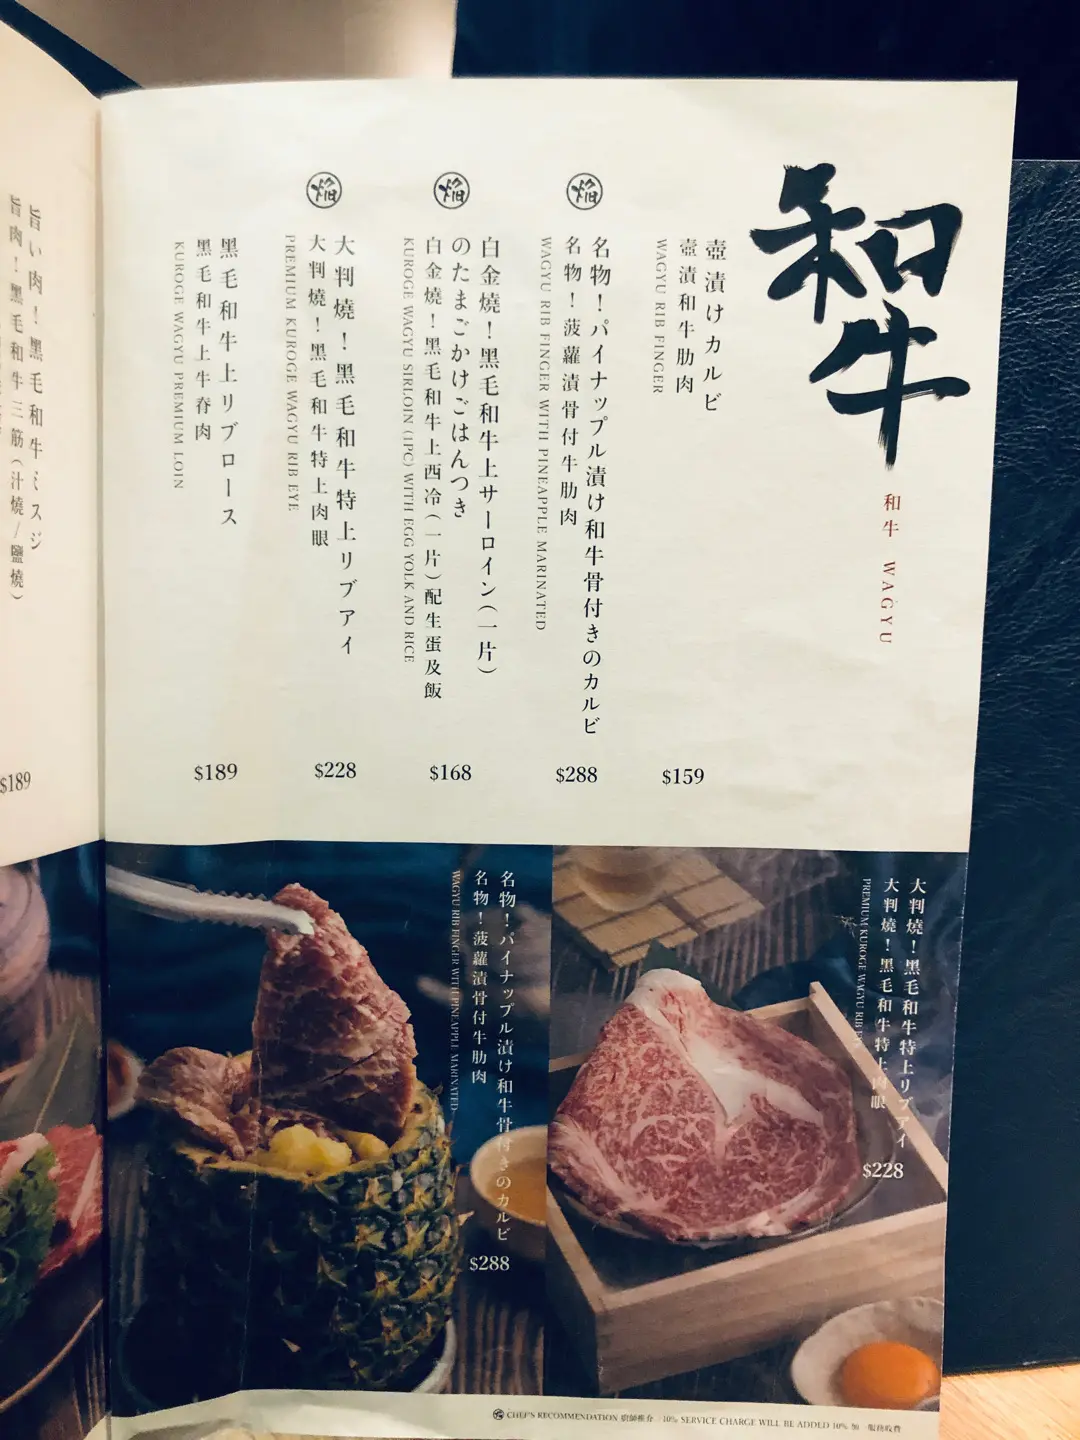 和牛
和牛 WAGYU
壺漬けカルビ
壺漬和牛肋肉
WAGYU RIB FINGER
$159
焰
名物！パイナップル漬け和牛骨付きのカルビ
名物！菠蘿漬骨付牛肋肉
WAGYU RIB FINGER WITH PINEAPPLE MARINATED
$288
焰
白金燒！黑毛和牛上サーロイン(一片)
のたまごかけごはんつき
白金燒！黑毛和牛上西冷(一片)配生蛋及飯
KUROGE WAGYU SIRLOIN (1PC) WITH EGG YOLK AND RICE
$168
焰
大判燒！黑毛和牛特上リブアイ
大判燒！黑毛和牛特上肉眼
PREMIUM KUROGE WAGYU RIB EYE
$228
黑毛和牛上リブロース
黑毛和牛上牛脊肉
KUROGE WAGYU PREMIUM LOIN
$189
旨い肉！黑毛和牛ミスジ
旨肉！黑毛和牛三筋(汁燒/鹽燒)
$189
大判燒！黑毛和牛特上リブアイ
大判燒！黑毛和牛特上肉眼
PREMIUM KUROGE WAGYU RIB EYE
$228
名物！パイナップル漬け和牛骨付きのカルビ
名物！菠蘿漬骨付牛肋肉
WAGYU RIB FINGER WITH PINEAPPLE MARINATED
$288
焰 CHEF'S RECOMMENDATION 廚師推介 / 10% SERVICE CHARGE WILL BE ADDED 10% 加一服務收費